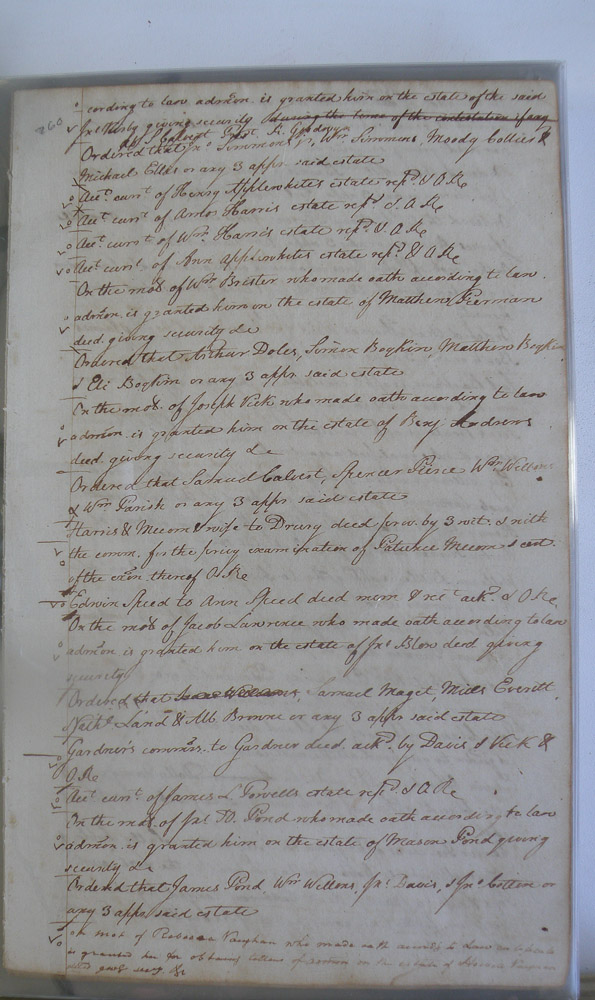 260
cording to law admon. is granted him on the estate of the said
Jno giving security during the time of the contestation if any
Ordered that Jno Simmons, Wm. Simmons, Moody Collier &
Michael Ellis or any 3 appr. said estate
Acct. currt. of Henry Applewhites estate retd. & O Re
Acct currt of Amos Harris estate retd. & O Re
Acct. currt. of Wm. Harris estate retd. & O Re
Acct currt. of Ann Applewhites estate retd. & O Re
On the mo. of Wm Brister who made oath according to law
admon. is granted him on the estate of Matthew
decd. giving security &c
Ordered that Arthur Doles, Simon Boykin, Matthew Boykin
& Eli Boykin or any 3 appr said estate
On the mo. of Joseph Vick who made oath according to law
admon. is granted him on the estate of Benj. Andrews
decd. giving security &c
Ordered that Samuel Calvert, Spencer Pierce Wm Wellons
& Wm Parish or any 3 appr said estate
Harris & Mecom & wife to Drury deed prov. by 3 wit. & with
the comm. for the privy examination of Patience Mecom & cert.
of the exon. thereof O Re
Edwin Speed to Ann Speed deed mem & rect ackd. & O Re
On the mo. of Jacob Lawrence who made oath according to law
admon. is granted him on the estate of Jno Blow decd giving
security
Ordered that Samuel Maget, Mills Everitt
Nathl. Land & Alb Browne or any 3 appr said estate
Gardner's commrs. to Gardner deed ackd. by Davis & Vick &
O Re
Acct currt of James L estate retd. & O Re
On the mo. of Pond who made oath according to law
admon. is granted him on the estate of Mason Pond giving
security &c
Ordered that James Pond, Wm Wellons, Jno Davis, & Jno Cotten or
any 3 appr said estate
On mot of Rebecca Vaughan who made oath accordg to Law
is granted her for obtaing letters of on the estate of Vaughan